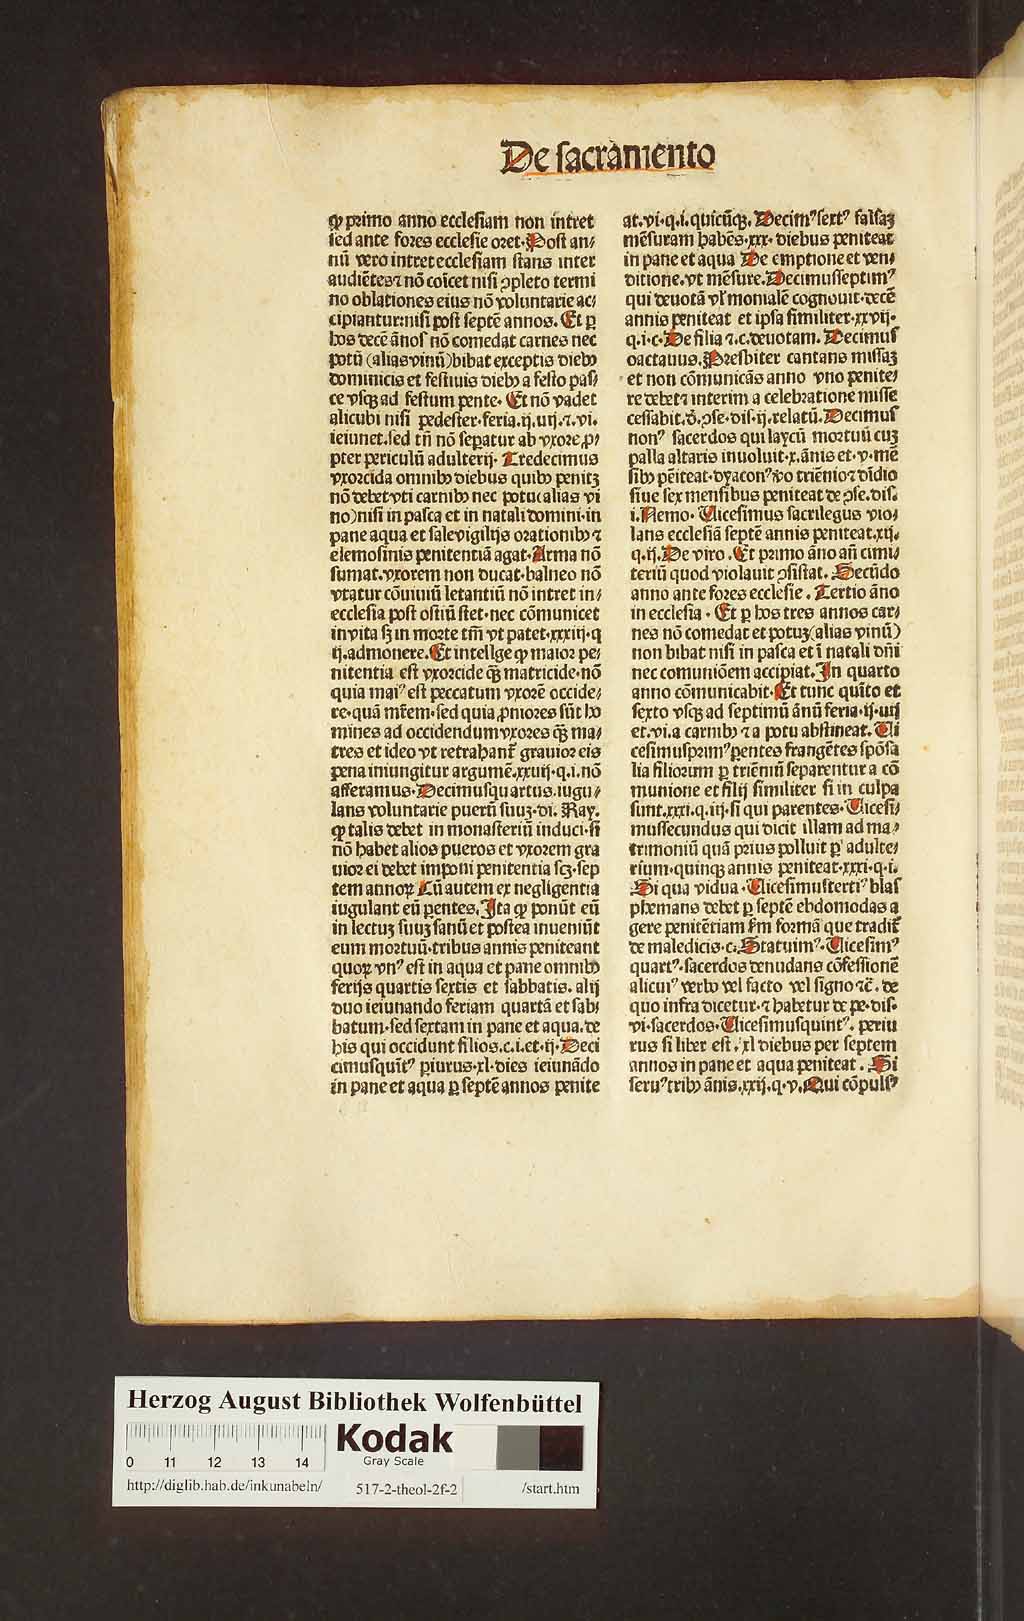 De sacramento
ꝙ primo anno ecclesiam non intret
sed ante fores ecclesie oret. Post an⸗
nū vero intret ecclesiam stans inter
audiētes ⁊ nō coīcet nisi ꝯpleto termi
no oblationes eius nō voluntarie ac⸗
cipiantur: nisi post septē annos. Et ꝑ
hos decē ānos nō comedat carnes nec
potū (alias vinū) bibat exceptis dieb᷒
dominicis et festiuis dieb᷒ a festo pas⸗
ce vsqꝫ ad festum pente. Et nō vadet
alicubi nisi pedester. feria. ij. iiij. ⁊. vi.
ieiunet. sed tn̄ nō seꝑatur ab vxore. ꝓ⸗
pter periculū adulterij. Tredecimus
vxorcida omnib᷒ diebus quib᷒ penitꝫ
nō debet vti carnib᷒ nec potu (alias vi
no) nisi in pasca et in natali domini. in
pane aqua et sale vigilijs orationib᷒ ⁊
elemosinis penitentiā agat. Arma nō
sumat. vxorem non ducat. balneo nō
vtatur cōuiuiū letantiū nō intret in⸗
ecclesia post ostiū stet. nec cōmunicet
in vita sꝫ in morte tm̄ vt patet. xxxiij. q
ij. admonere. Et intellge ꝙ maior pe⸗
nitentia est vxorcide q̄ꝫ matricide. nō
quia mai᷒ est peccatum vxorē occide⸗
re. quā mr̄em. sed quia ꝓniores sūt ho
mines ad occidendum vxores q̄ꝫ ma⸗
tres et ideo vt retrahant᷑ grauior eis
pena iniungitur argumē. xxvij. q. i. nō
afferamus. Decimusquartus. iugu⸗
lans voluntarie puerū suuꝫ. di. Ray.
ꝙ talis debet in monasteriū induci. si
nō habet alios pueros et vxorem gra
uior ei debet imponi penitentia scꝫ. sep
tem annoꝝ Cū autem ex negligentia
iugulant eū ꝑentes. Ita ꝙ ponūt eū
in lectuꝫ suuꝫ sanū et postea inueniūt
eum mortuū. tribus annis peniteant
quoꝝ vn᷒ est in aqua et pane omnib᷒
ferijs quartis sextis et sabbatis. alij
duo ieiunando feriam quartā et sab⸗
batum. sed sextam in pane et aqua. de
his qui occidunt filios. c. i. et. ij. Deci
cimusquīt᷒ ꝑiurus. xl. dies ieiunādo
in pane et aqua ꝑ septē annos penite
at. vi. q. i. quicūqꝫ. Decim᷒sext᷒ falsaꝫ
mēsuram habēs. xxx. diebus peniteat
in pane et aqua De emptione et ven⸗
ditione. vt mēsure. Decimusseptim᷒
qui deuotā vl᷑ monialē cognouit. decē
annis peniteat et ipsa similiter. xxvij.
q. i. c. De filia ⁊. c. deuotam. Decimus
octauus. Presbiter cantans missaꝫ
et non cōmunicās anno vno penite⸗
re debet ⁊ interim a celebratione misse
cessabit. d̓. ꝯse. dis. ij. relatū. Decimus
non᷒ sacerdos qui laycū mortuū cuꝫ
palla altaris inuoluit. x. ānis et. v. mē
sib᷒ pēiteat. dyacon᷒ v̓o triēnio ⁊ dīdio
siue sex mensibus peniteat de ꝯse. dis.
i. Nemo. Vicesimus sacrilegus vio⸗
lans ecclesiā septē annis peniteat. xij.
q. ij. De viro. Et primo āno añ cimi⸗
teriū quod violauit ꝯsistat. Secūdo
anno ante fores ecclesie. Tertio āno
in ecclesia. Et ꝑ hos tres annos car⸗
nes nō comedat et potuꝫ (alias vinū)
non bibat nisi in pasca et ī natali dn̄i
nec comuniōem accipiat. In quarto
anno cōmunicabit. Et tunc quīto et
sexto vsqꝫ ad septimū ānū feria. ij. iiij
et. vi. a carnib᷒ ⁊ a potu abstineat. Vi
cesimusprim᷒ ꝑentes frangētes spōsa
lia filiorum ꝑ triēniū separentur a cō
munione et filij similiter si in culpa
sunt. xxxi. q. iij. si qui parentes. Vicesi⸗
mussecundus qui dicit illam ad ma⸗
trimoniū quā prius polluit ꝑ adulte⸗
rium. quinqꝫ annis peniteat. xxxi. q. i.
Si qua vidua. Vicesimusterti᷒ blas
phemans debet ꝑ septē ebdomodas a
gere penitētiam sm̄ formā que tradit᷑
de maledicis. c. Statuim᷒. Vicesim᷒
quart᷒. sacerdos denudans cōfessionē
alicui᷒ verbo vel facto vel signo ⁊c̄. de
quo infra dicetur. ⁊ habetur de pe. dis.
vi. sacerdos. Vicesimusquint᷒. periu
rus si liber est. xl diebus per septem
annos in pane et aqua peniteat. Si
seru᷒ trib᷒ ānis. xxij. q. v. Qui cōpuls᷒
Herzog August Bibliothek Wolfenbüttel
Kodak
Gray Scale
0 11 12 13 14
http://diglib.hab.de/inkunabeln/ 517-2-theol-2f-2 /start.htm